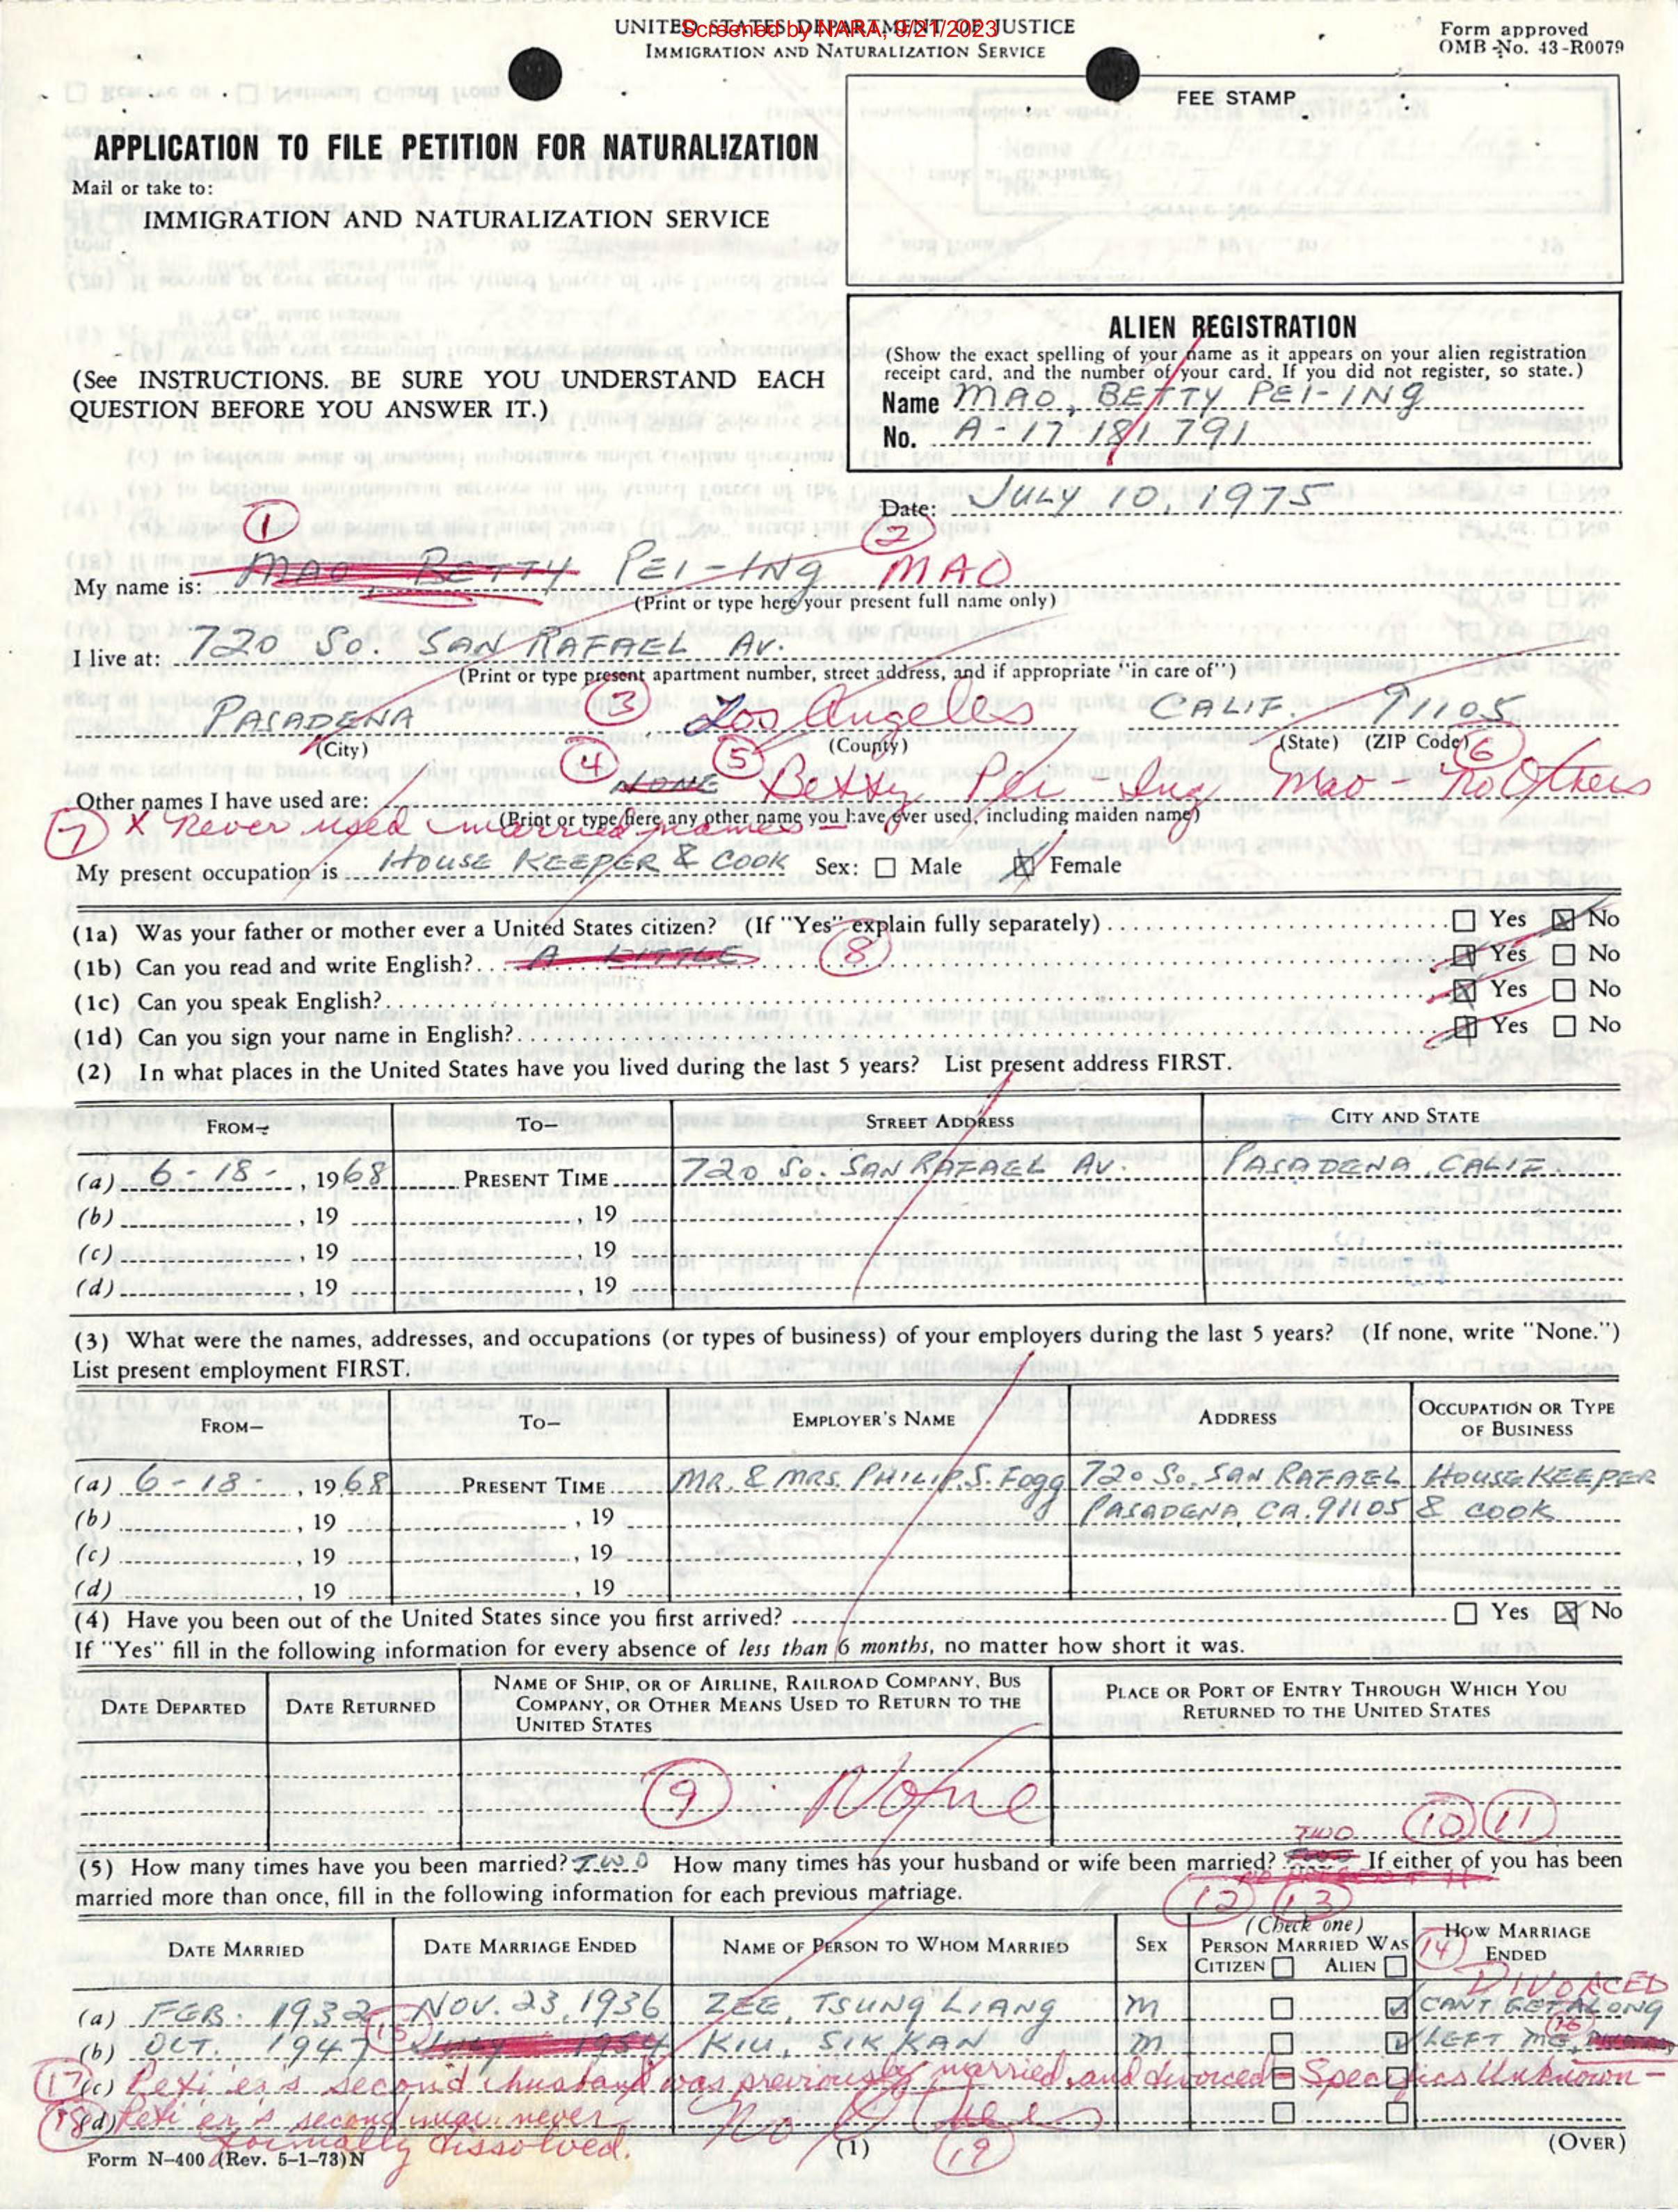 UNITED STATES DEPARTMENT OF JUSTICE
Screened by NARA, 9/21/2023
IMMIGRATION AND NATURALIZATION SERVICE
Form approved
OMB No. 43-R0079
FEE STAMP
APPLICATION TO FILE PETITION FOR NATURALIZATION
Mail or take to:
IMMIGRATION AND NATURALIZATION SERVICE
ALIEN REGISTRATION
(Show the exact spelling of your name as it appears on your alien registration
receipt card, and the number of your card. If you did not register, so state.)
(See INSTRUCTIONS. BE SURE YOU UNDERSTAND EACH
QUESTION BEFORE YOU ANSWER IT.)
Name MAO, BETTY PEI-ING
No. A-17 181 791
Date: JULY 10, 1975
1 2
My name is: MAO BETTY PEI-ING MAO
(Print or type here your present full name only)
I live at: 720 SO. SAN RAFAEL AV.
(Print or type present apartment number, street address, and if appropriate "in care of")
PASADENA 3 Los Angeles CALIF. 91105
(City) (County) (State) (ZIP Code)
4 5 6
Other names I have used are: NONE Betty Pei-Ing Mao - No Others
(Print or type here any other name you have ever used, including maiden name)
7 X Never used married names -
My present occupation is HOUSE KEEPER & COOK Sex: Male Female
(1a) Was your father or mother ever a United States citizen? (If "Yes" explain fully separately) Yes No
(1b) Can you read and write English? A LITTLE 8 Yes No
(1c) Can you speak English? Yes No
(1d) Can you sign your name in English? Yes No
(2) In what places in the United States have you lived during the last 5 years? List present address FIRST.
FROM- TO- STREET ADDRESS CITY AND STATE
(a) 6-18-, 1968 PRESENT TIME 720 SO. SAN RAFAEL AV. PASADENA, CALIF.
(b) , 19 , 19
(c) , 19 , 19
(d) , 19 , 19
(3) What were the names, addresses, and occupations (or types of business) of your employers during the last 5 years? (If none, write "None.")
List present employment FIRST.
FROM- TO- EMPLOYER'S NAME ADDRESS OCCUPATION OR TYPE OF BUSINESS
(a) 6-18-, 1968 PRESENT TIME MR. & MRS. PHILIP. S. FOGG 720 SO. SAN RAFAEL HOUSE KEEPER
(b) , 19 , 19 PASADENA, CA. 91105 & COOK
(c) , 19 , 19
(d) , 19 , 19
(4) Have you been out of the United States since you first arrived? Yes No
If "Yes" fill in the following information for every absence of less than 6 months, no matter how short it was.
DATE DEPARTED DATE RETURNED NAME OF SHIP, OR OF AIRLINE, RAILROAD COMPANY, BUS COMPANY, OR OTHER MEANS USED TO RETURN TO THE UNITED STATES PLACE OR PORT OF ENTRY THROUGH WHICH YOU RETURNED TO THE UNITED STATES
9 None
TWO 10 11
(5) How many times have you been married? TWO How many times has your husband or wife been married? If either of you has been
married more than once, fill in the following information for each previous marriage.
12 13
DATE MARRIED DATE MARRIAGE ENDED NAME OF PERSON TO WHOM MARRIED SEX (Check one) PERSON MARRIED WAS CITIZEN ALIEN 14 HOW MARRIAGE ENDED
DIVORCED
(a) FEB. 1932 NOV. 23, 1936 ZEE, TSUNG LIANG M CANT GET ALONG
(b) OCT. 1947 15 July 1954 KIU, SIK KAN M LEFT ME, 16
17 (c) Peti'er's second husband was previously married and divorced - Specifics Unknown -
18 (d) Peti'er's second marr. never
formally dissolved. No
19
Form N-400 (Rev. 5-1-73)N (1) (OVER)